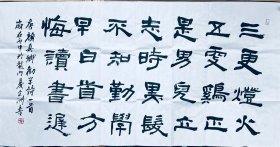 三更燈火
五更鷄正
是男兒立
志時黑髮
不知勤學
早白首方
悔讀書遲
唐顏真卿勸學詩一首